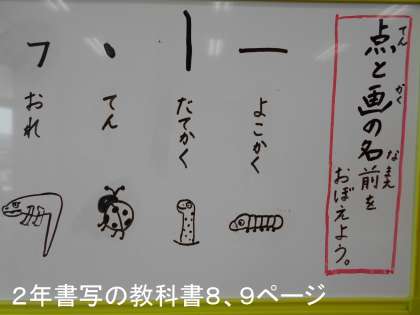 点と画の名前を
おぼえよう。
てん
かく
なまえ
よこかく
たてかく
てん
おれ
2年書写の教科書8、9ページ